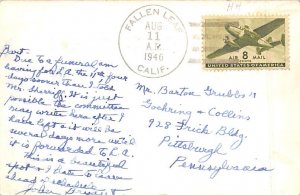 HH
FALLEN LEAF
AUG
11
A.M.
1946
CALIF.
8¢
AIR MAIL
UNITED STATES OF AMERICA
Bart
Due to a funeral am
having for L.A. the 11th four
days sooner than I told
Mr. Sheriff. It is just
possible the committee
may write here after I
have left & it will be
several days more until
it is forwarded to L.A.
This is a beautiful
spot & I hate to leave
Mr. Barton Grubbs
Goehring & Collins
928 Frick Bldg.
Pittsburgh
Pennsylvania